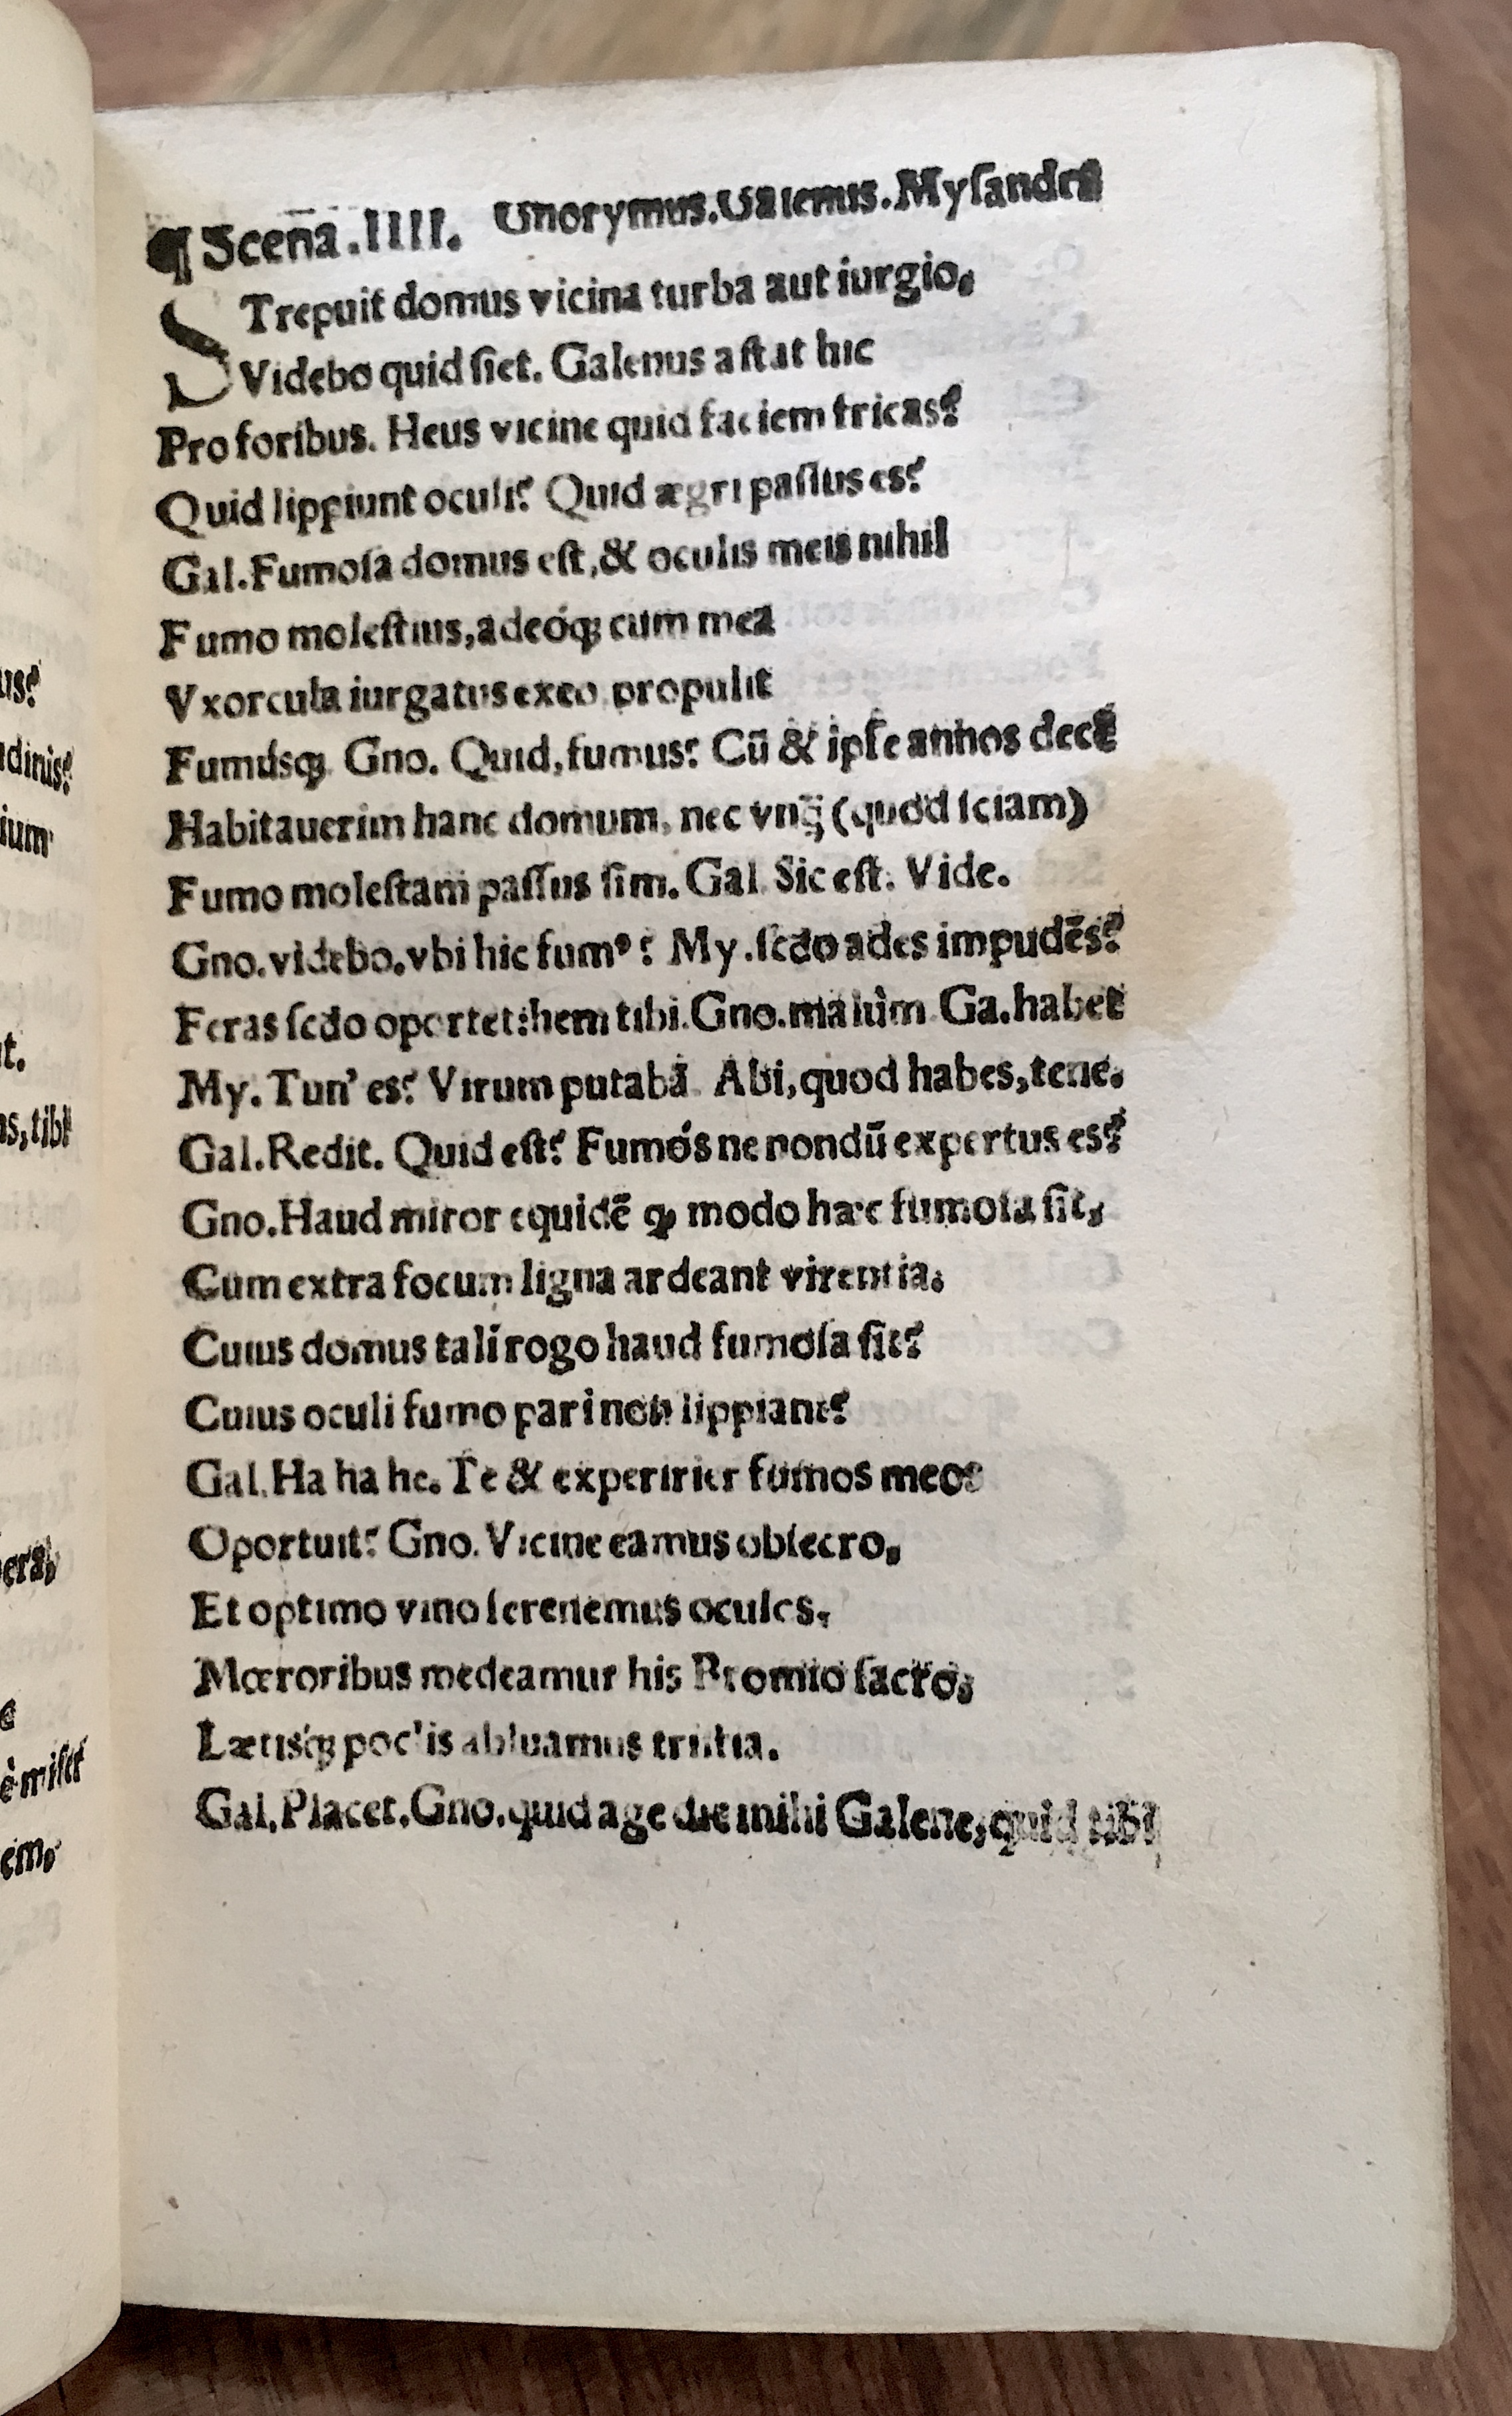 us?
dinis?
ium
t.
ns, tibi
erā,
è misit
em,
¶ Scena .IIII. Gnorymus. Galenus. Mysandra
STrepuit domus vicina turba aut iurgio,
Videbo quid siet. Galenus astat hic
Pro foribus. Heus vicine quid faciem fricas?
Quid lippiunt oculi? Quid ægri passus es?
Gal. Fumosa domus est, & oculis meis nihil
Fumo molestius, adeóq; cum mea
Vxorcula iurgatus exeo, propulit
Fumúsq; Gno. Quid, fumus? Cū & ipse annos decē
Habitauerim hanc domum, nec vnq̄ (quòd sciam)
Fumo molestam passus sim. Gal. Sic est. Vide.
Gno. videbo. vbi hic fumꝰ? My. secdo ades impudēs?
Feras secdo oportet: hem tibi. Gno. malùm Ga. habet
My. Tun' es? Virum putabā. Abi, quod habes, tene.
Gal. Redit. Quid est? Fumós ne nondū expertus es?
Gno. Haud miror equidē ꝙ modo hæc fumosa sit,
Cum extra focum ligna ardeant virentia,
Cuius domus tali rogo haud fumosa sit?
Cuius oculi fumo pari non lippiant?
Gal. Ha ha he. Te & experirier fumos meos
Oportuit? Gno. Vicine eamus obsecro,
Et optimo vino serenemus oculos,
Mœroribus medeamur his Bromio sacro,
Lætisq́; poc'lis abluamus tristia.
Gal. Placet. Gno. quid age dic mihi Galene, quid tibi